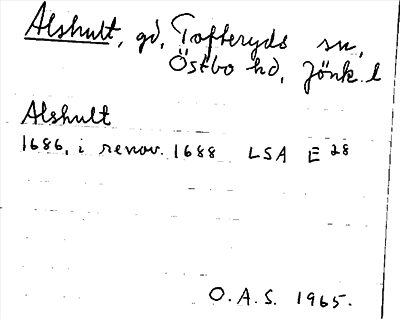 Alshult, gd, Tofteryds sn,
Östbo hd, Jönk. l
Alshult
1686, i renov. 1688 LSA E 28
O.A.S. 1965.